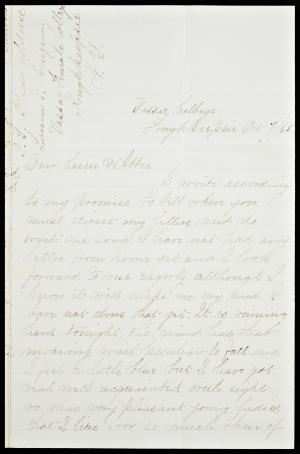 Vassar College
Poughkeepsie Oct 7, 65
Dear Carrie & Abbie
I write according
to my promise to tell where you
must direct my letters and do
write me soon I have not had any
letter from home yet and I look
forward to one eagerly although I
know it will make me cry and I
have not done that yet. It is raining
hard tonight, the wind has that
moaning wail peculiar to fall and
I feel a little blue but I have got
real well acquainted with eight
or nine very pleasant young ladies
that I like ever so much three of
P.S. Please address
Vassar Female College
Poughkeepsie
N. Y.